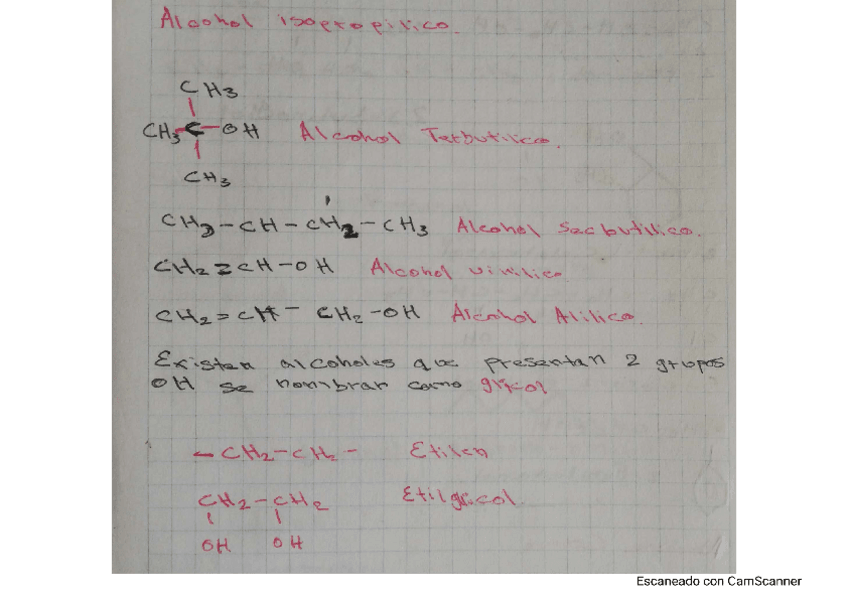 Alcohol isopropilico.
CH3
CH3-C-OH Alcohol Terbutilico.
CH3
CH3-CH-CH2-CH3 Alcohol Secbutilico.
CH2=CH-OH Alcohol vinilico.
CH2=CH-CH2-OH Alcohol Alilico.
Existen alcoholes que presentan 2 grupos
OH se nombran como glicol
-CH2-CH2- Etilen
CH2-CH2 Etilglicol.
OH OH
Escaneado con CamScanner